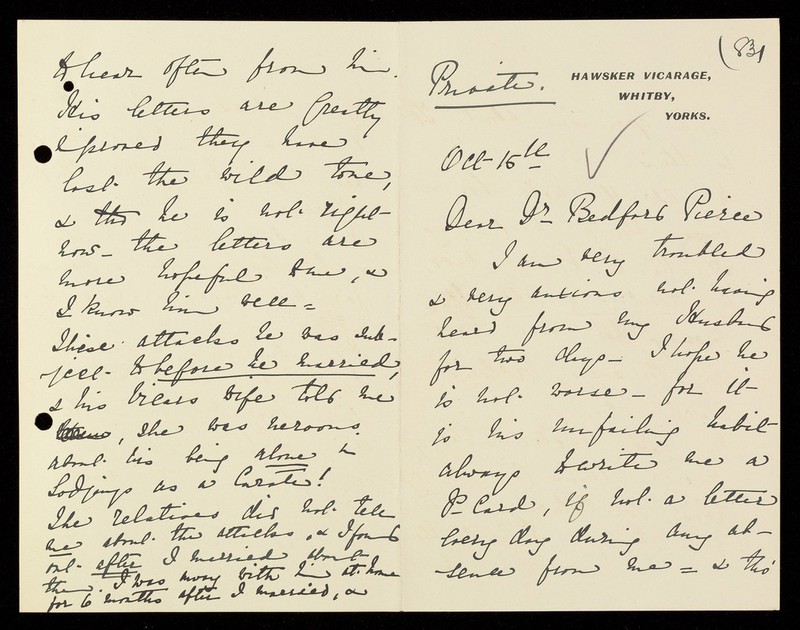 (83)
HAWSKER VICARAGE,
WHITBY,
YORKS.
Private.
Oct 15th
Dear Dr Bedford Pierce
I am very troubled
& very anxious not having
heard from my Husband
for two days - I hope he
is not worse - for it
is his unfailing habit
always to write me a
P-Card, if not a letter
every day during any ab-
sence from me = & tho'
to hear often from him.
His letters are greatly
improved they have
lost the wild tone,
& tho he is not right
now - the letters are
more hopeful tone, &
I know him well =
These attacks he was sub-
ject to before he married,
& his Vicars wife told me
, she was nervous
about his being alone in
Lodgings as a Curate!
The relatives did not tell
me about the attacks, & I found
out after I married about
them. I was away with him at home
for 6 months after I married, &